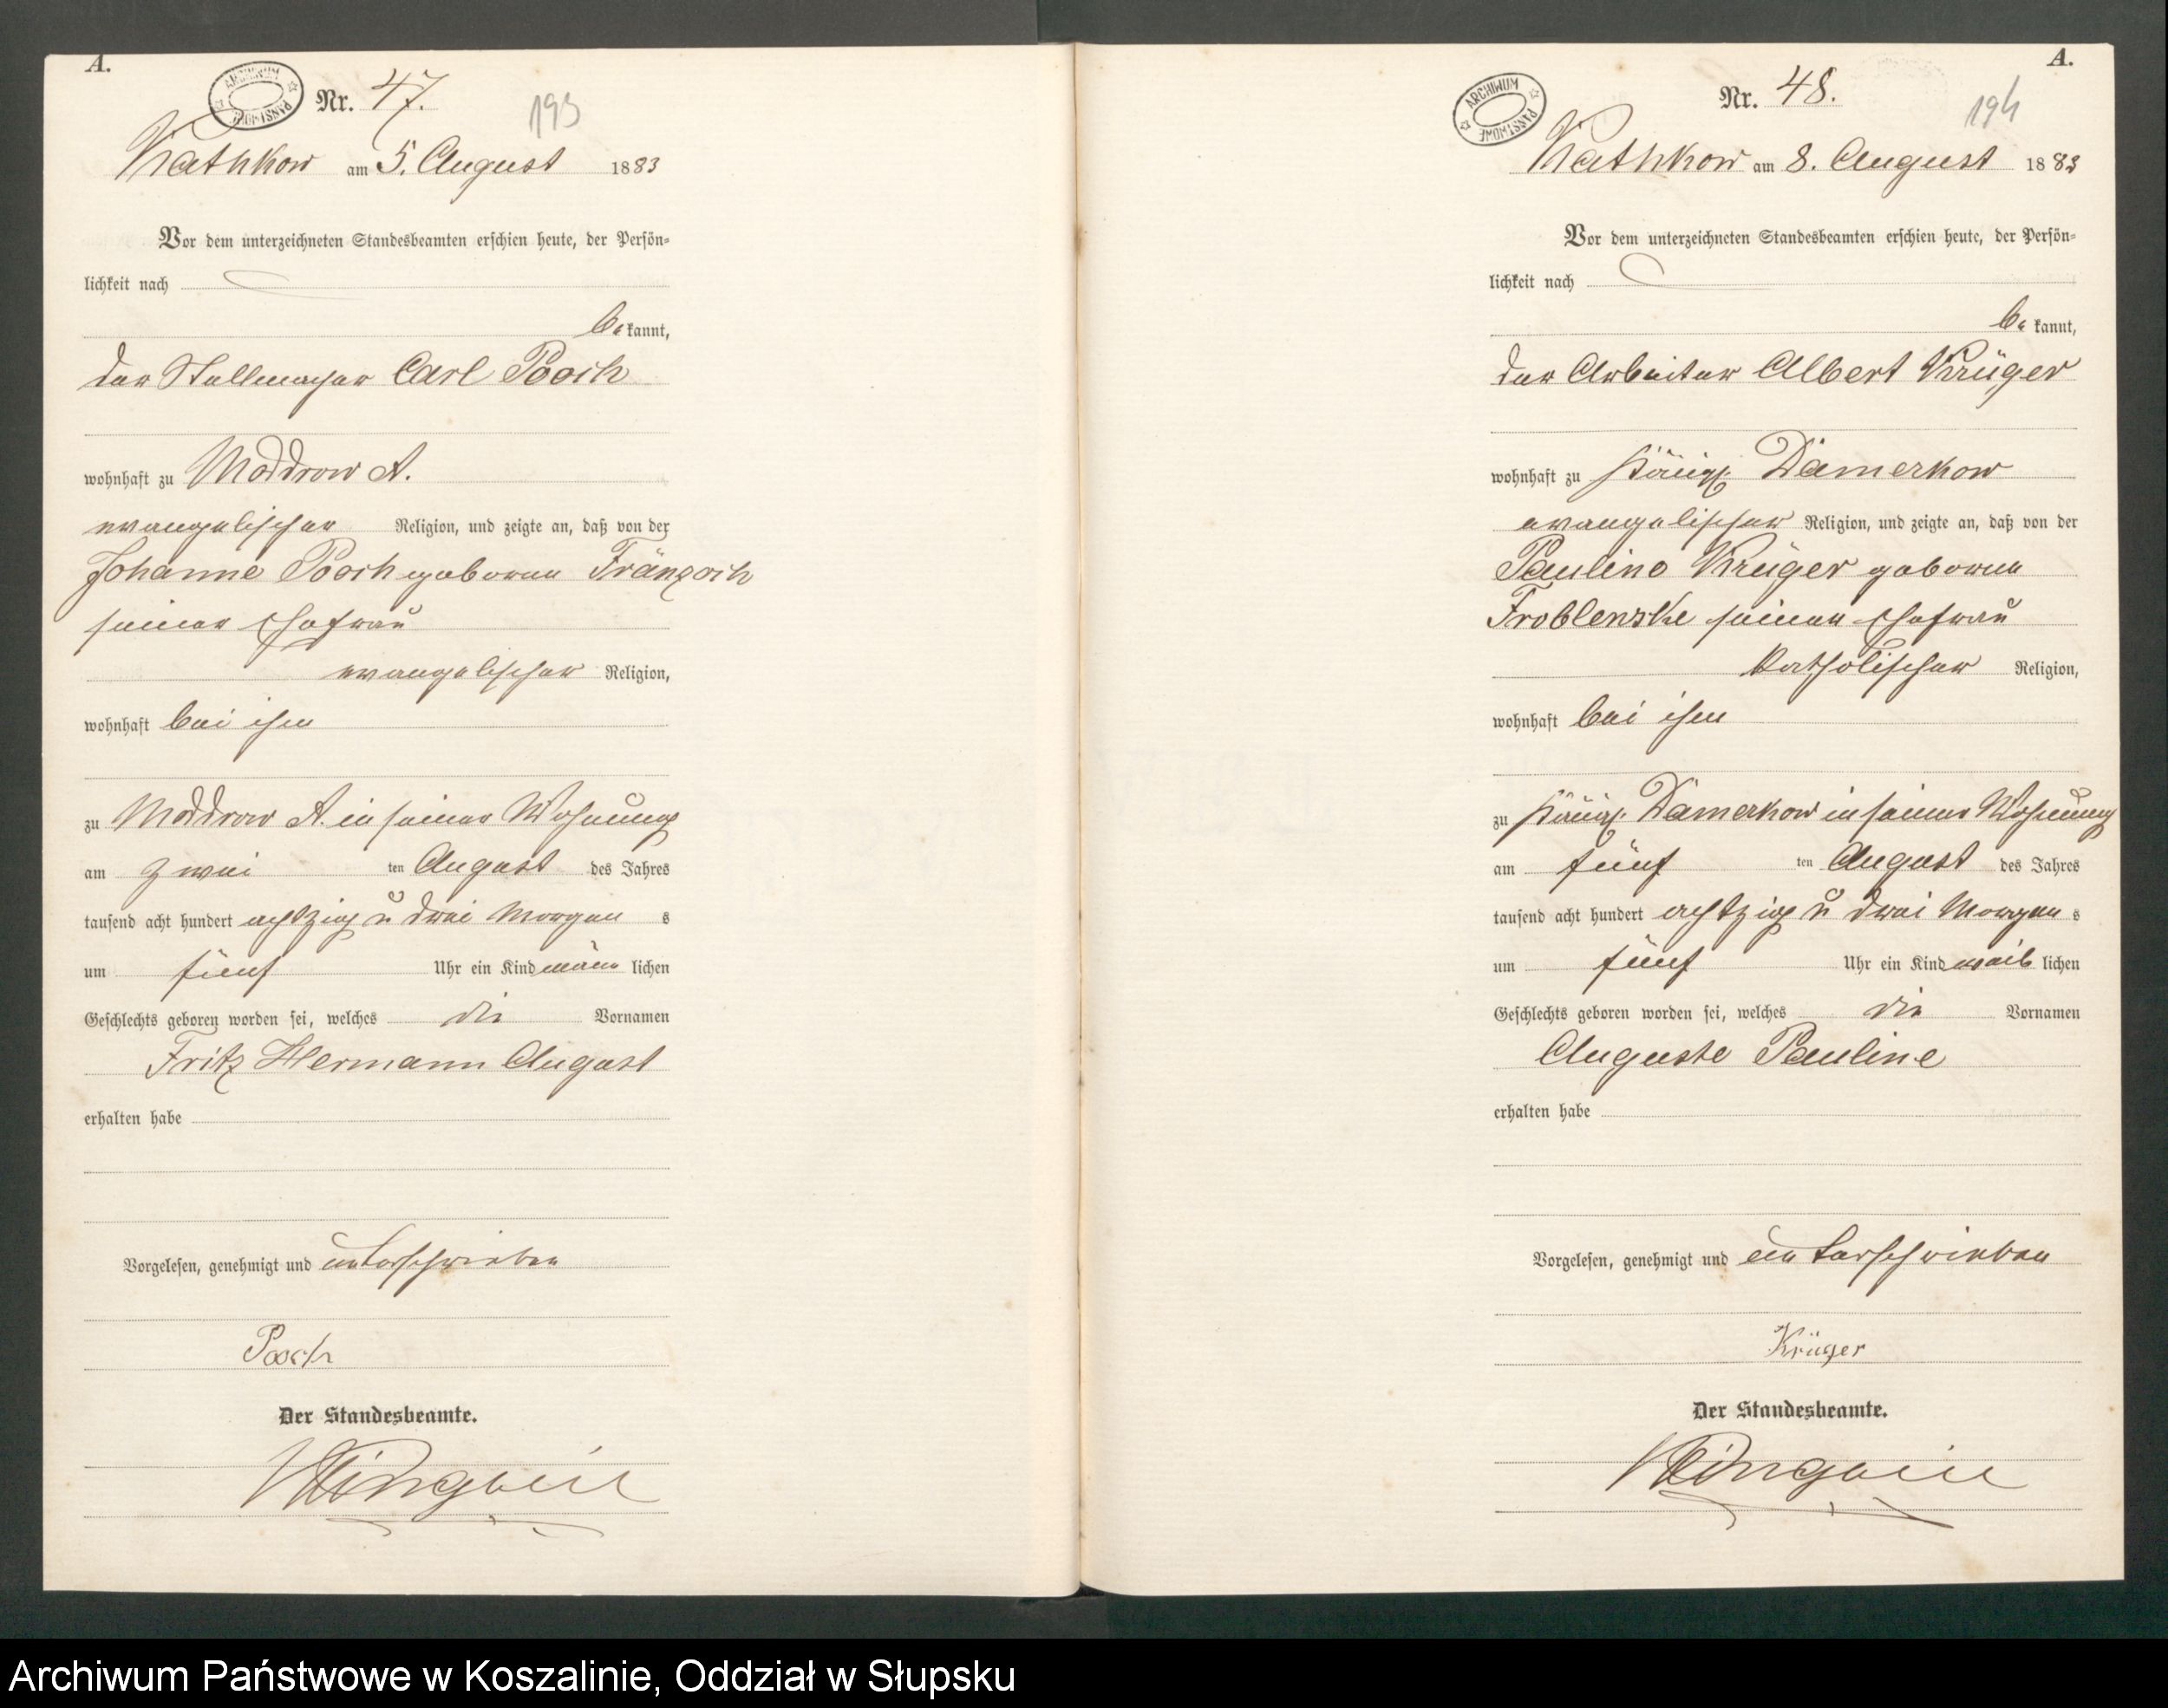 A.
ARCHIWUM PAŃSTWOWE
Nr. 47.
193
Kathkow am 5. August 1883
Vor dem unterzeichneten Standesbeamten erschien heute, der Persön-
lichkeit nach
be kannt,
der Stellmacher Carl Pooch
wohnhaft zu Moddrow A.
evangelischer Religion, und zeigte an, daß von der
Johanne Pooch geborene
seiner Ehefrau
evangelischer Religion,
wohnhaft bei ihm
zu Moddrow A. in seiner Wohnung
am zwei ten August des Jahres
tausend acht hundert achtzig u drei Morgen s
um fünf Uhr ein Kind männ lichen
Geschlechts geboren worden sei, welches die Vornamen
Fritz Hermann August
erhalten habe
Vorgelesen, genehmigt und unterschrieben
Pooch
Der Standesbeamte.
A.
ARCHIWUM PAŃSTWOWE
Nr. 48.
194
Kathkow am 8. August 1883
Vor dem unterzeichneten Standesbeamten erschien heute, der Persön-
lichkeit nach
be kannt,
der Arbeiter Albert Krüger
wohnhaft zu Königl. Damerkow
evangelischer Religion, und zeigte an, daß von der
Pauline Krüger geborene
Froblenske seiner Ehefrau
katholischer Religion,
wohnhaft bei ihm
zu Königl. Damerkow in seiner Wohnung
am fünf ten August des Jahres
tausend acht hundert achtzig u drei Morgen s
um fünf Uhr ein Kind weib lichen
Geschlechts geboren worden sei, welches die Vornamen
Auguste Pauline
erhalten habe
Vorgelesen, genehmigt und unterschrieben
Krüger
Der Standesbeamte.
Archiwum Państwowe w Koszalinie, Oddział w Słupsku